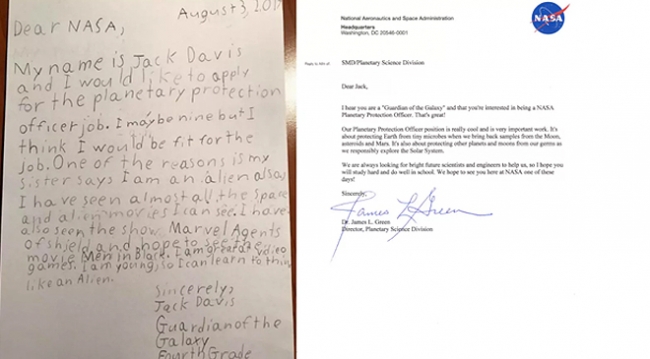 August 3, 2017
Dear NASA,
My name is Jack Davis
and I would like to apply
for the planetary protection
officer job. I maybe nine but I
think I would be fit for the
job. One of the reasons is my
sister says I am an alien also
I have seen almost all the space
and alien movies I can see. I have
also seen the show Marvel Agents
of shield and hope to see the
movie Men in Black. I am great at vdieo
games. I am young, so I can learn to think
like an Alien.
Sincerely,
Jack Davis
Guardian of the
Galaxy
Fourth Grade
National Aeronautics and Space Administration
Headquarters
Washington, DC 20546-0001
NASA
Reply to Attn of:
SMD/Planetary Science Division
Dear Jack,
I hear you are a "Guardian of the Galaxy" and that you're interested in being a NASA
Planetary Protection Officer. That's great!
Our Planetary Protection Officer position is really cool and is very important work. It's
about protecting Earth from tiny microbes when we bring back samples from the Moon,
asteroids and Mars. It's also about protecting other planets and moons from our germs as
we responsibly explore the Solar System.
We are always looking for bright future scientists and engineers to help us, so I hope you
will study hard and do well in school. We hope to see you here at NASA one of these
days!
Sincerely,
James L Green
Dr. James L. Green
Director, Planetary Science Division